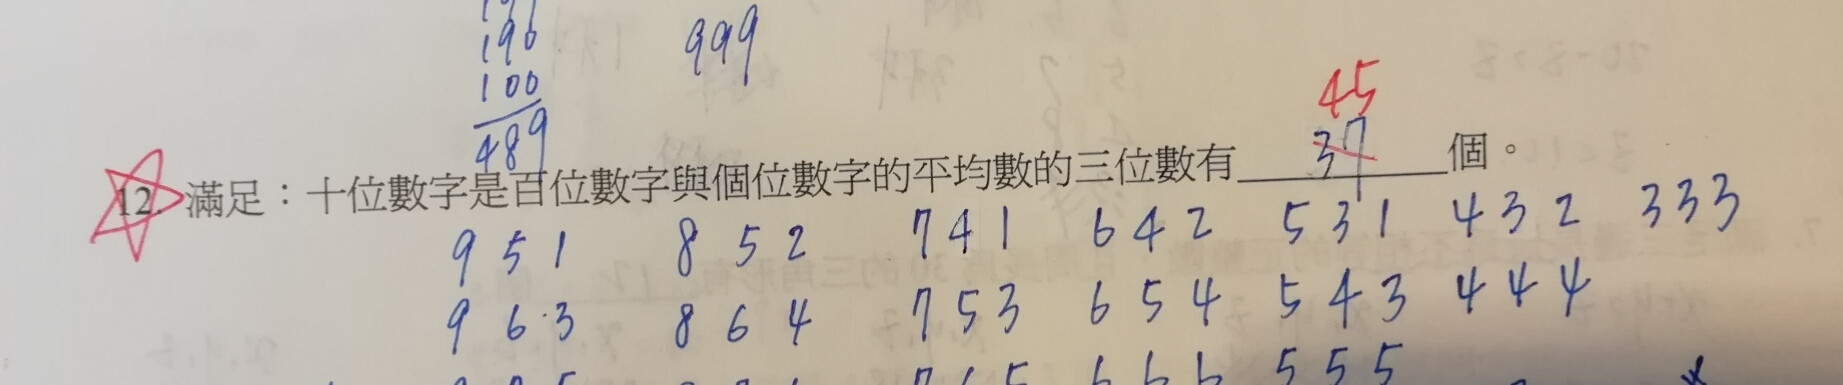 196
100
489
999
45
37
12. 滿足：十位數字是百位數字與個位數字的平均數的三位數有 個。
951 852 741 642 531 432 333
963 864 753 654 543 444
765 666 555